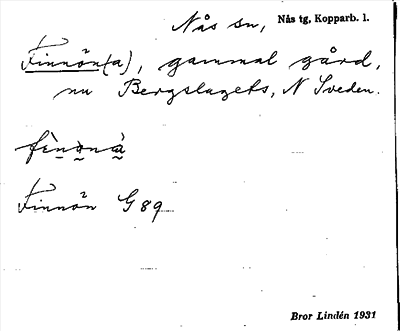 Nås sn, Nås tg, Kopparb. l.
Finnön(a), gammal gård,
nu Bergslagets, N Sveden.
fènønà
Finnön G89
Bror Lindén 1931